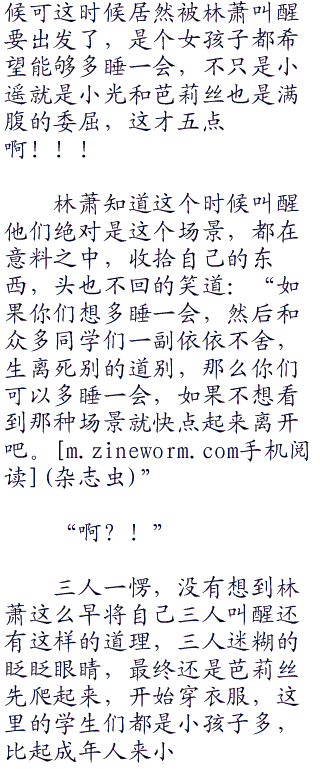 候可这时候居然被林萧叫醒
要出发了，是个女孩子都希
望能够多睡一会，不只是小
遥就是小光和芭莉丝也是满
腹的委屈，这才五点
啊！！！
林萧知道这个时候叫醒
他们绝对是这个场景，都在
意料之中，收拾自己的东
西，头也不回的笑道：“如
果你们想多睡一会，然后和
众多同学们一副依依不舍，
生离死别的道别，那么你们
可以多睡一会，如果不想看
到那种场景就快点起来离开
吧。[m.zineworm.com手机阅
读](杂志虫)”
“啊？！”
三人一愣，没有想到林
萧这么早将自己三人叫醒还
有这样的道理，三人迷糊的
眨眨眼睛，最终还是芭莉丝
先爬起来，开始穿衣服，这
里的学生们都是小孩子多，
比起成年人来小